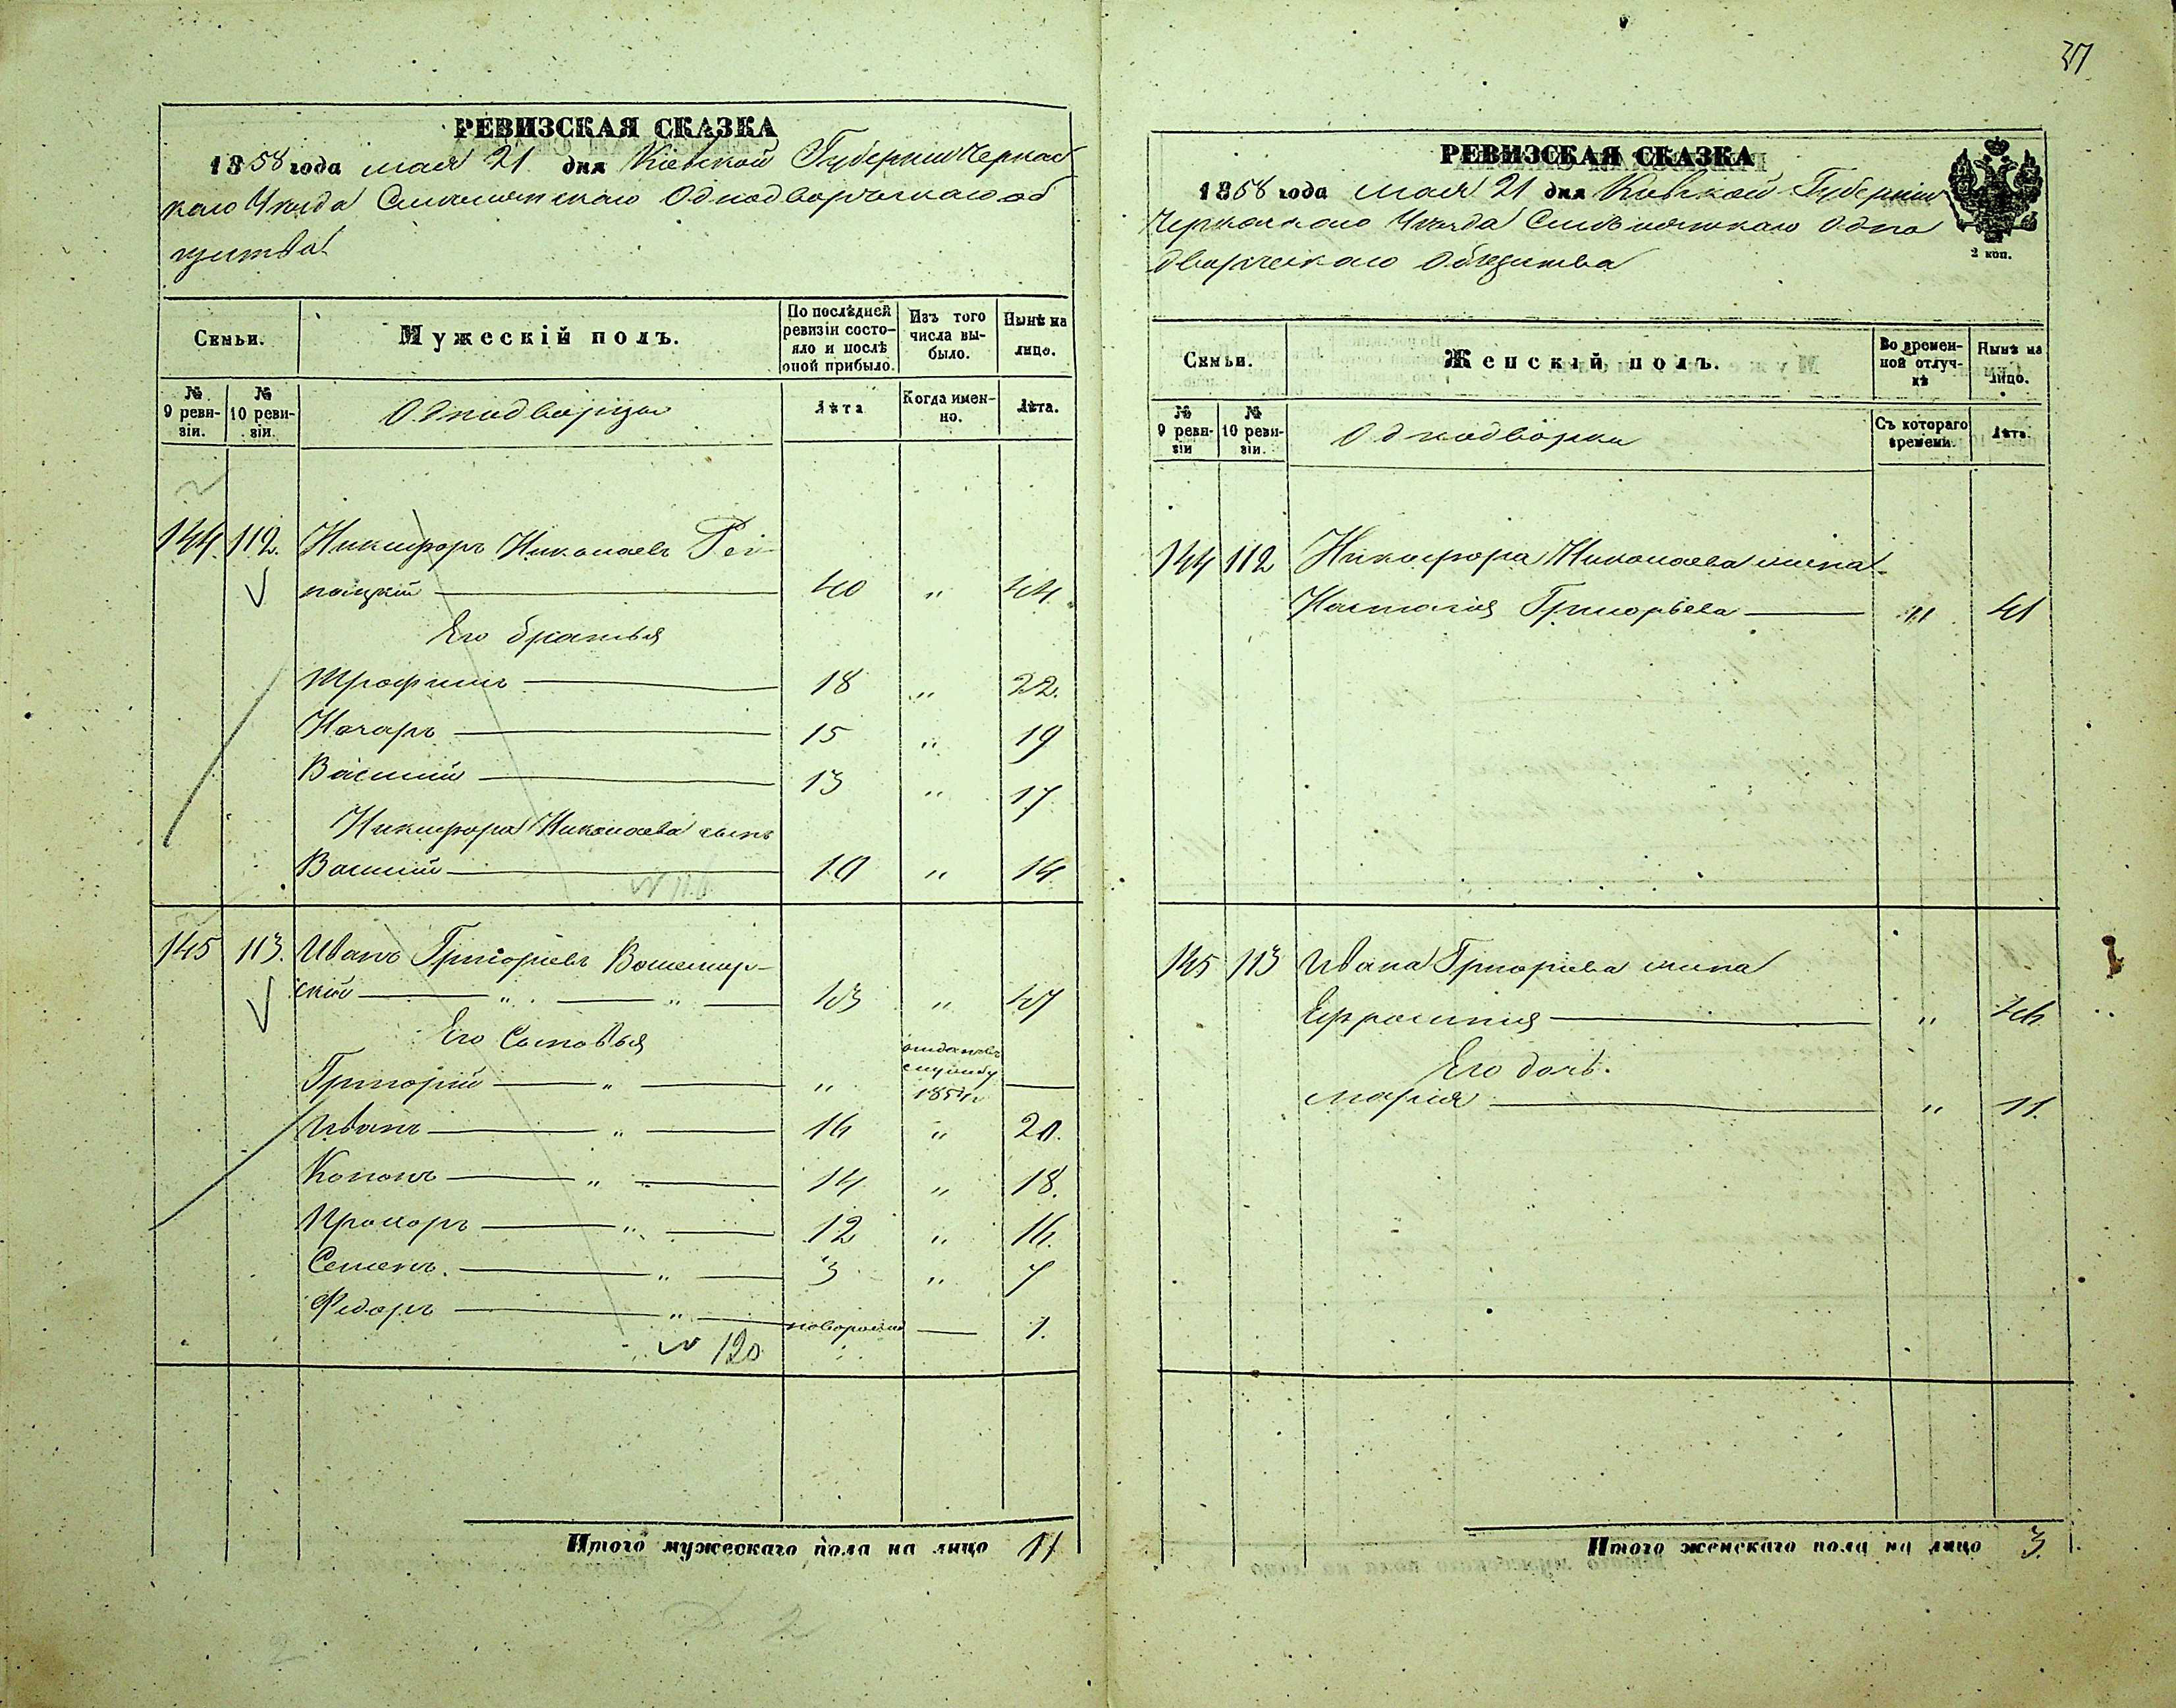 37
РЕВИЗСКАЯ СКАЗКА
1858 года мая 21 дня Кіевской Губерніи Черкас
каго Уезда Смелянскаго Однодворческаго об
щества
Семьи.
Мужескій полъ.
По послѣдней ревизіи состо-яло и послѣ оной прибыло.
Изъ того числа вы-было.
Нынѣ на лицо.
№ 9 реви-зіи.
№ 10 реви-зіи.
Однодворцы
Лѣта
Когда имен-но.
Лѣта.
144. 112. Никифоръ Николаевъ
40 " 44.
Его братья
Трофимъ 18 " 22.
Назаръ 15 " 19
Василий 13 " 17
Никифора Николаева сынъ
Василий 10 " 14
145 113. Иванъ Григориевъ
ский " " 43 " 47
Его Сыновья
Григорий " " отданъ въ службу 1854
Иванъ " 16 " 20.
Кононъ " 14 " 18.
Прохоръ " 12 " 16.
Семенъ. " 3 " 7
Федоръ " новорожд 1.
120
Итого мужескаго пола на лицо 11
РЕВИЗСКАЯ СКАЗКА
1858 года мая 21 дня Киевской Губерніи
Черкаскаго Уезда Смелянскаго Одно
дворческаго Общества
2 коп.
Семьи.
Женскій полъ.
Во времен-ной отлуч-кѣ
Нынѣ на лицо.
№ 9 реви-зіи
№ 10 реви-зіи.
Однодворки
Съ котораго времени.
Лѣта.
144 112 Никифора Николаева жена
Настасия Григорьева " 41
145 113 Ивана Григориева жена
Ефросиния " 46
Его дочь.
Мария " 11.
Итого женскаго пола на лицо 3.